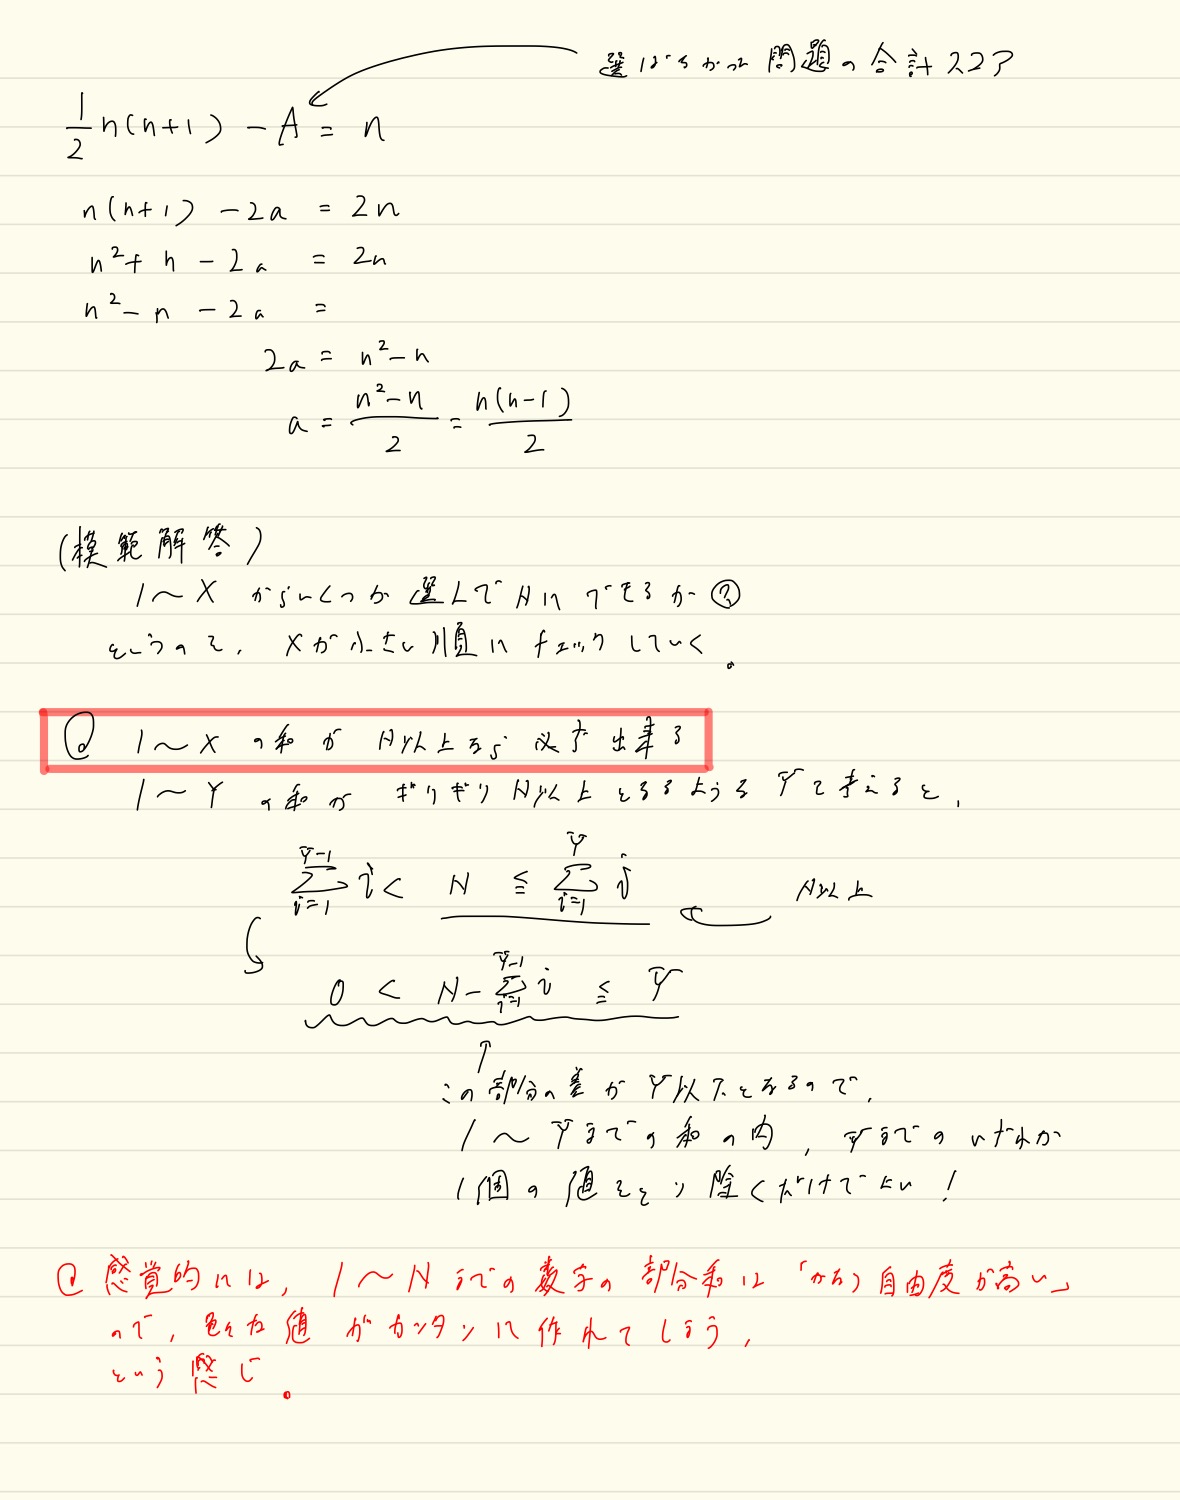 選ばなかった問題の合計スコア
1/2 n(n+1) - A = n
n(n+1) - 2a = 2n
n² + n - 2a = 2n
n² - n - 2a =
2a = n² - n
a = (n² - n)/2 = n(n-1)/2
(模範解答)
1〜X からいくつか選んで Nに できるか?
というのを、Xが小さい順に チェックしていく。
@ 1〜X の和が N以上なら 必ず出来る
1〜Y の和が ギリギリ N以上となるような Yで考えると、
∑_{i=1}^{Y-1} i < N ≦ ∑_{i=1}^{Y} i N以上
0 < N - ∑_{i=1}^{Y-1} i ≦ Y
↑
この部分の差が Y以下となるので、
1〜Yまでの和の内、Yまでのいずれか
1個の値をとり除くだけでよい!
@ 感覚的には、1〜Nまでの数字の部分和は「かなり自由度が高い」
ので、色々な値がカンタンに作れてしまう、
という感じ。